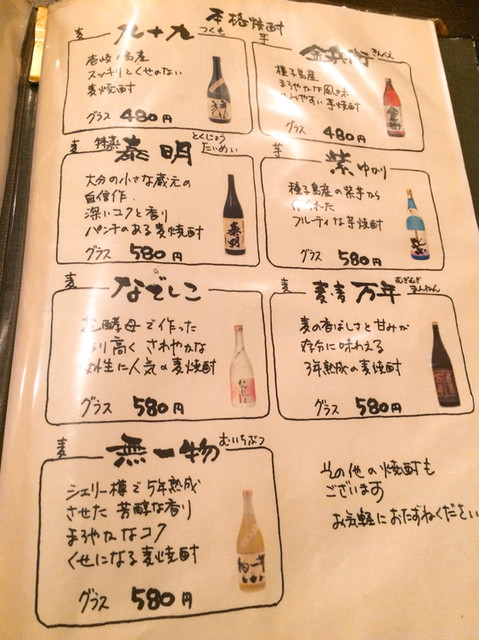 本格焼酎
麦
九十九
つくも
壱岐ノ島産
スッキリとくせのない
麦焼酎
グラス 480円
芋
金兵衛
きんべえ
種子島産
まろやかな風味
やすい芋焼酎
グラス 480円
麦
特蒸
泰明
とくじょう
たいめい
大分の小さな蔵元の
自信作.
深いコクと香り
パンチのある麦焼酎
グラス 580円
芋
紫ゆかり
種子島産の紫芋から
作られた
フルーティな芋焼酎
グラス 580円
麦
なでしこ
酵母で作った
香り高くさわやかな
女性に人気の麦焼酎
グラス 580円
麦
麦麦万年
むぎむぎ
まんねん
麦の香ばしさと甘みが
存分に味わえる
3年熟成の麦焼酎
グラス 580円
麦
無一物
むいちぶつ
シェリー樽で5年熟成
させた芳醇な香り
まろやかなコク
くせになる麦焼酎
グラス 580円
その他の焼酎も
ございます
お気軽におたずねください